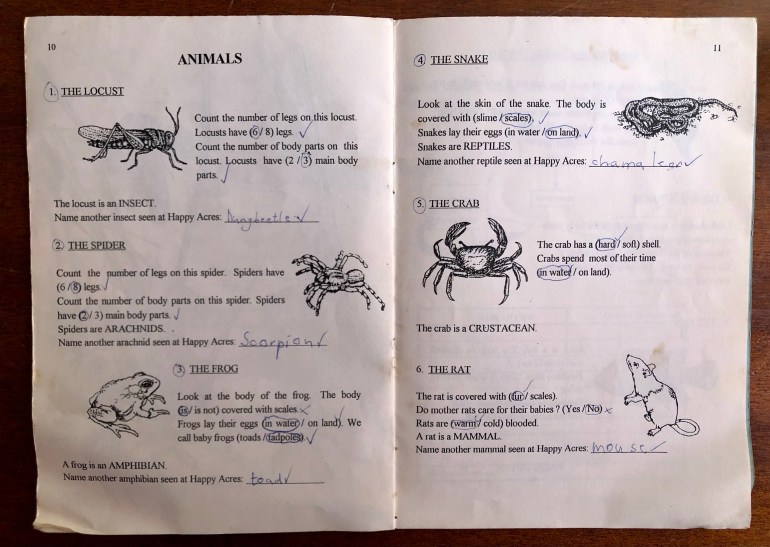 10
ANIMALS
1. THE LOCUST
Count the number of legs on this locust.
Locusts have (6 / 8) legs. ✓
Count the number of body parts on this
locust. Locusts have (2 / 3) main body
parts. ✓
The locust is an INSECT.
Name another insect seen at Happy Acres: Dungbeetle ✓
2. THE SPIDER
Count the number of legs on this spider. Spiders have
(6 / 8) legs. ✓
Count the number of body parts on this spider. Spiders
have (2 / 3) main body parts. ✓
Spiders are ARACHNIDS.
Name another arachnid seen at Happy Acres: Scorpion ✓
3. THE FROG
Look at the body of the frog. The body
(is / is not) covered with scales. ×
Frogs lay their eggs (in water / on land). We
call baby frogs (toads / tadpoles). ✓
A frog is an AMPHIBIAN.
Name another amphibian seen at Happy Acres: toad ✓
11
4. THE SNAKE
Look at the skin of the snake. The body is
covered with (slime / scales). ✓
Snakes lay their eggs (in water / on land). ✓
Snakes are REPTILES.
Name another reptile seen at Happy Acres: chamaleon ✓
5. THE CRAB
The crab has a (hard / soft) shell.
Crabs spend most of their time
(in water / on land).
The crab is a CRUSTACEAN.
6. THE RAT
The rat is covered with (fur / scales).
Do mother rats care for their babies ? (Yes / No) ×
Rats are (warm / cold) blooded.
A rat is a MAMMAL.
Name another mammal seen at Happy Acres: mouse ✓